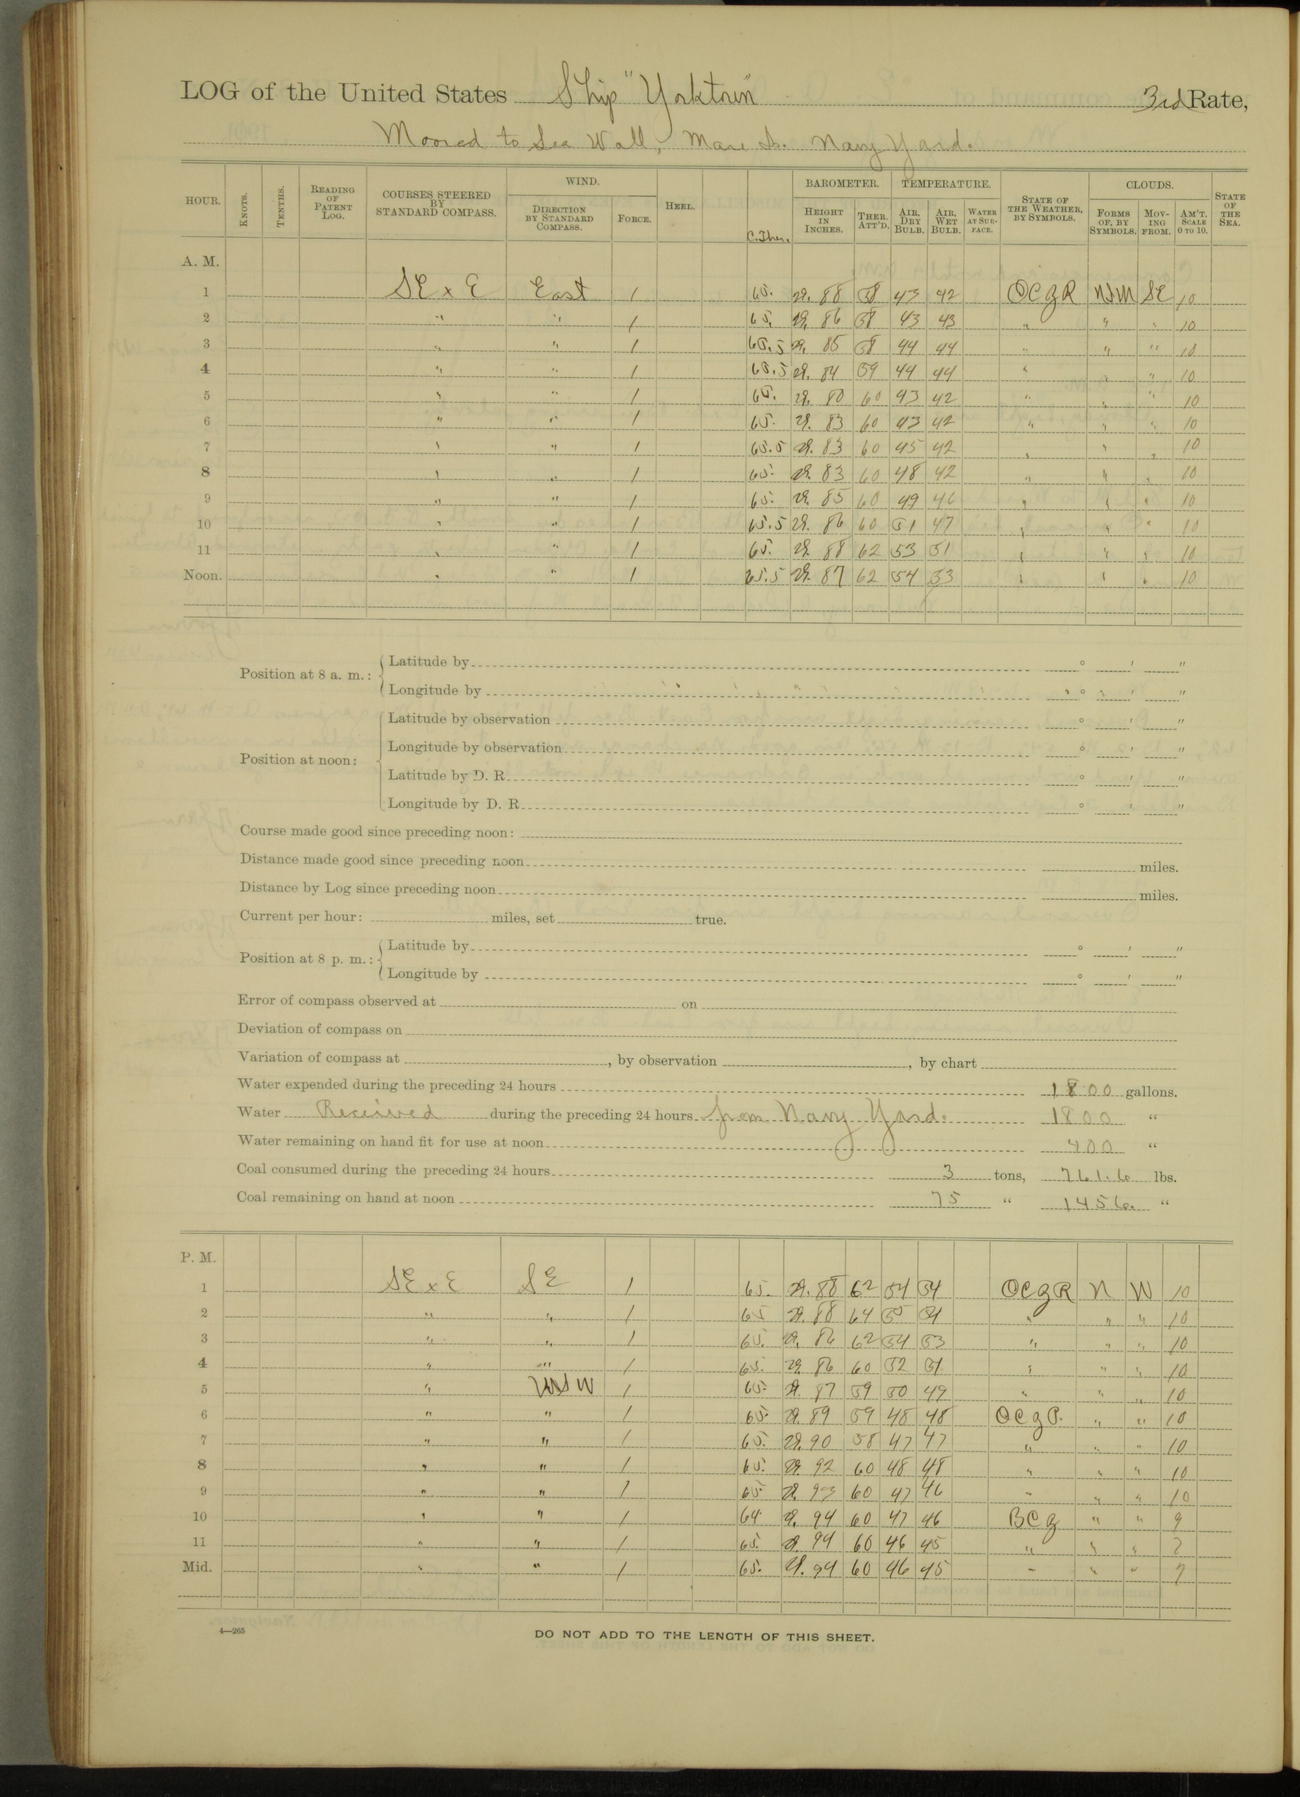 LOG of the United States Ship "Yorktown" 3rd Rate,
Moored to Sea Wall, Mare Is. Navy Yard.
HOUR. KNOTS. TENTHS. READING OF PATENT LOG. COURSES STEERED BY STANDARD COMPASS. WIND. DIRECTION BY STANDARD COMPASS. FORCE. HEEL. C. Ther. BAROMETER. HEIGHT IN INCHES. THER. ATT'D. TEMPERATURE. AIR, DRY BULB. AIR, WET BULB. WATER AT SURFACE. STATE OF THE WEATHER, BY SYMBOLS. CLOUDS. FORMS OF, BY SYMBOLS. MOVING FROM. AM'T. SCALE 0 TO 10. STATE OF THE SEA.
A. M.
1 SE x E East 1 65. 29. 88 58 43 42 OCGR SE 10
2 " " 1 65. 29. 86 58 43 43 " " " 10
3 " " 1 65.5 29. 85 58 44 44 " " " 10
4 " " 1 65.5 29. 84 59 44 44 " " " 10
5 " " 1 65. 29. 80 60 43 42 " " " 10
6 " " 1 65. 29. 83 60 43 42 " " " 10
7 " " 1 65.5 29. 83 60 45 42 " " " 10
8 " " 1 65. 29. 83 60 48 42 " " " 10
9 " " 1 65. 29. 85 60 49 46 " " " 10
10 " " 1 65.5 29. 86 60 51 47 " " " 10
11 " " 1 65. 29. 88 62 53 51 " " " 10
Noon. " " 1 65.5 29. 87 62 54 53 " " " 10
Position at 8 a. m.: Latitude by ° ' "
Longitude by ° ' "
Position at noon: Latitude by observation ° ' "
Longitude by observation ° ' "
Latitude by D. R. ° ' "
Longitude by D. R. ° ' "
Course made good since preceding noon:
Distance made good since preceding noon miles.
Distance by Log since preceding noon miles.
Current per hour: miles, set true.
Position at 8 p. m.: Latitude by ° ' "
Longitude by ° ' "
Error of compass observed at on
Deviation of compass on
Variation of compass at , by observation , by chart
Water expended during the preceding 24 hours 1800 gallons.
Water Received during the preceding 24 hours from Navy Yard. 1800 "
Water remaining on hand fit for use at noon 400 "
Coal consumed during the preceding 24 hours 3 tons, 761.6 lbs.
Coal remaining on hand at noon 75 " 1456. "
P. M.
1 SE x E SE 1 65. 29. 88 62 54 54 OCGR N W 10
2 " " 1 65 29. 88 64 55 54 " " " 10
3 " " 1 65. 29. 86 62 54 53 " " " 10
4 " " 1 65. 29. 86 60 52 51 " " " 10
5 " WSW 1 65. 29. 87 59 50 49 " " " 10
6 " " 1 65. 29. 89 59 48 48 OCGP. " " 10
7 " " 1 65. 29. 90 58 47 47 " " " 10
8 " " 1 65. 29. 92 60 48 48 " " " 10
9 " " 1 65. 29. 93 60 47 46 " " " 10
10 " " 1 64 29. 94 60 47 46 BCG " " 9
11 " " 1 65. 29. 94 60 46 45 " " " 7
Mid. " " 1 65. 29. 94 60 46 45 " " " 7
4—265
DO NOT ADD TO THE LENGTH OF THIS SHEET.